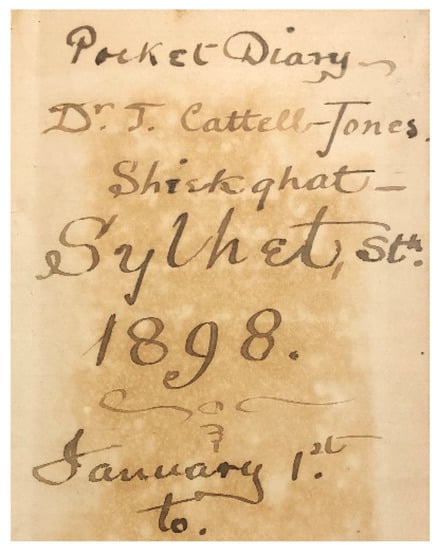 Pocket Diary
Dr. T. Cattell-Jones.
Shiekghat —
Sylhet, Sth.
1898.
January 1.st
to.